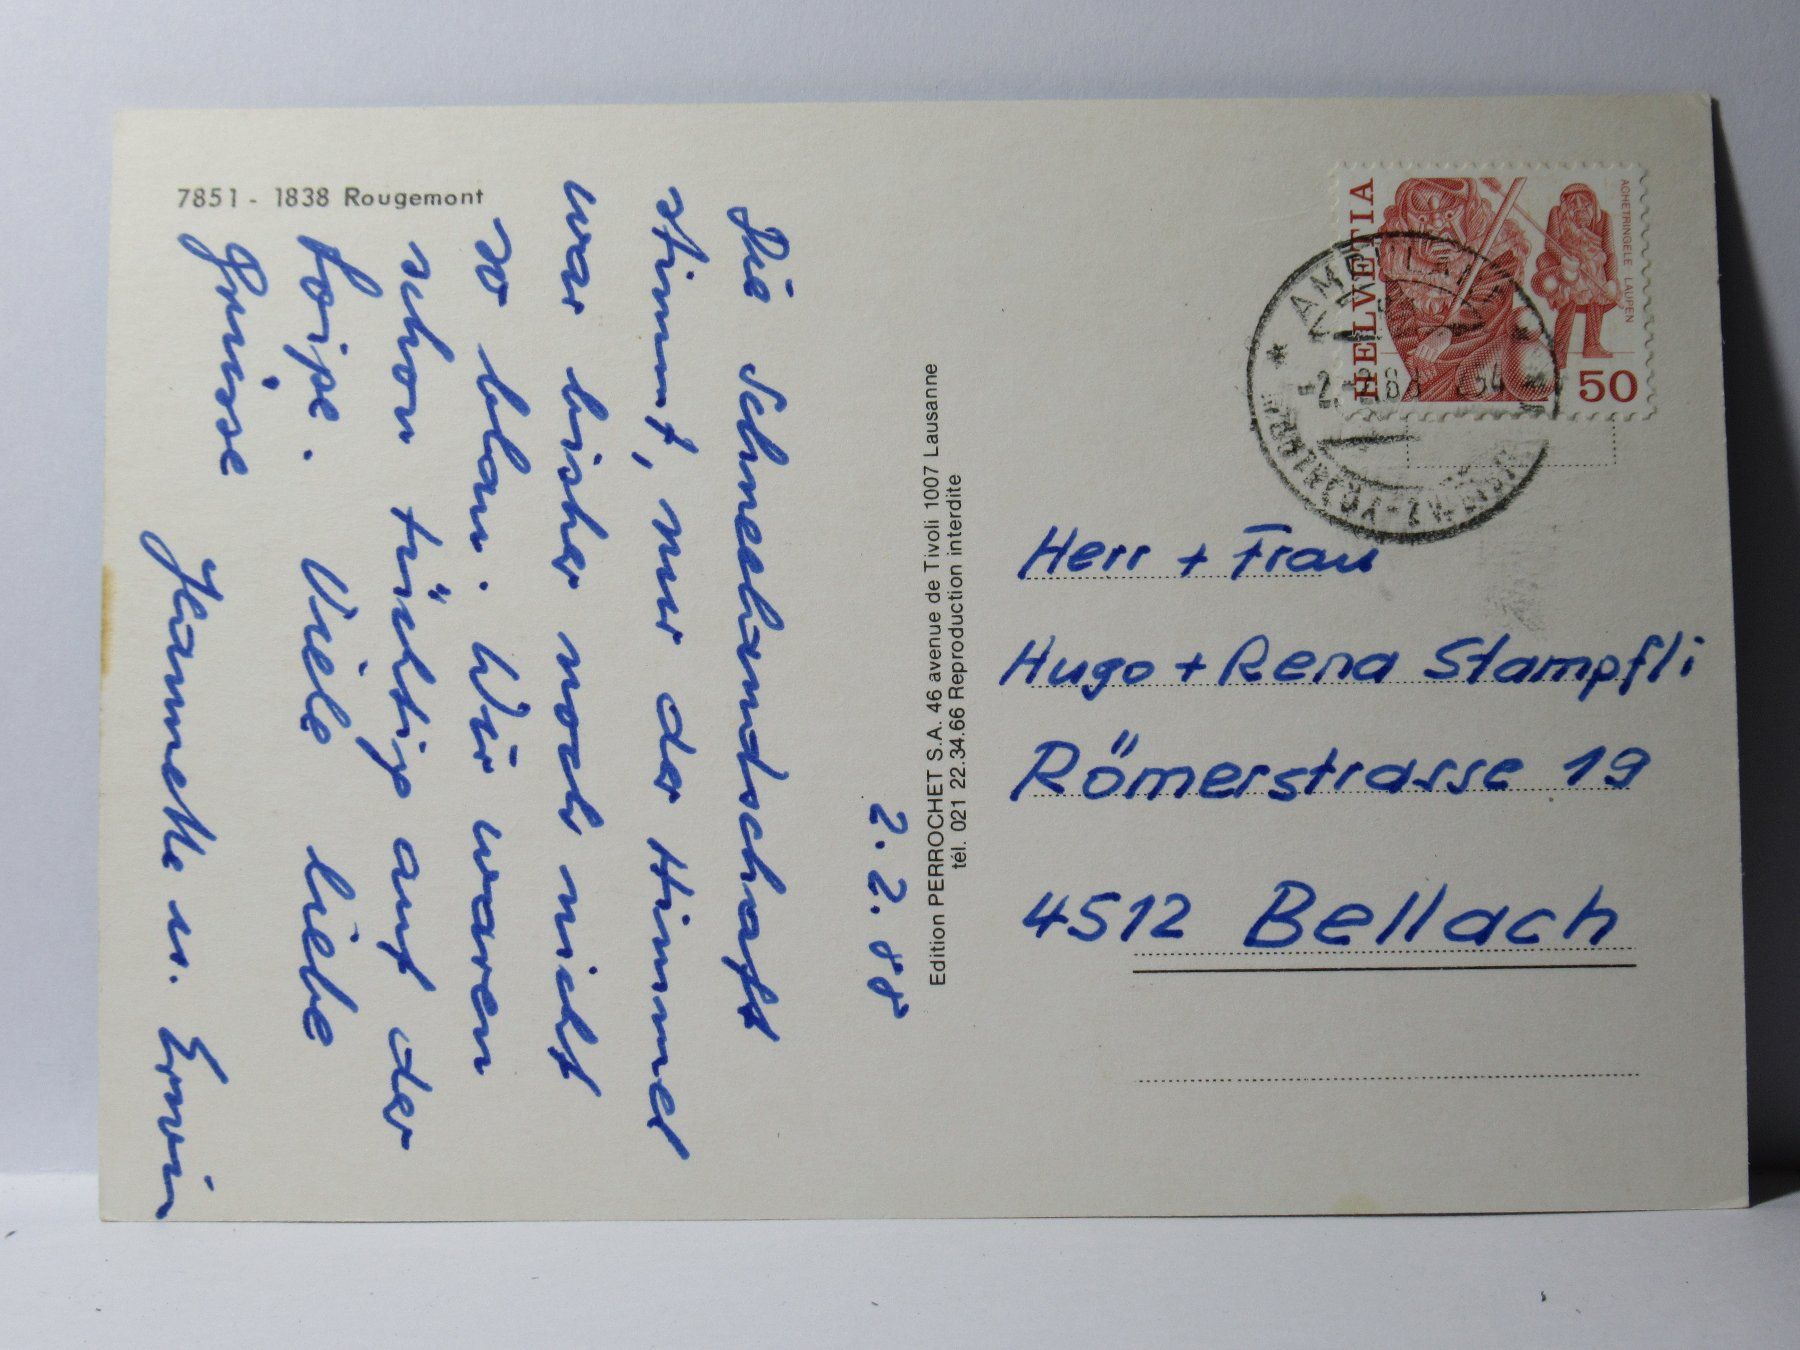 7851 - 1838 Rougemont
2.2.88
Die Schneelandschaft
stimmt, nur der Himmel
war bisher noch nicht
so blau. Wir waren
schon tüchtig auf der
Loipe. Viele liebe
Grüsse
Hannette u. Erwin
Edition PERROCHET S.A. 46 avenue de Tivoli 1007 Lausanne
tél. 021 22.34.66 Reproduction interdite
HELVETIA
ACHETRINGELE LAUPEN
50
Herr + Frau
Hugo + Rena Stampfli
Römerstrasse 19
4512 Bellach